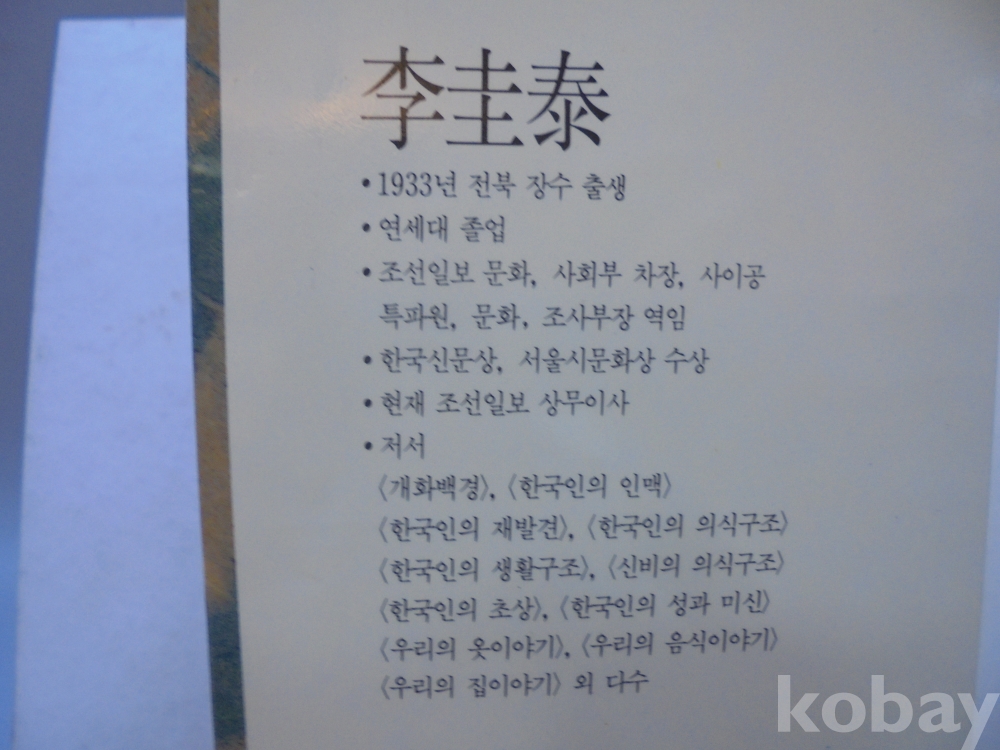 李圭泰
• 1933년 전북 장수 출생
• 연세대 졸업
• 조선일보 문화, 사회부 차장, 사이공
특파원, 문화, 조사부장 역임
• 한국신문상, 서울시문화상 수상
• 현재 조선일보 상무이사
• 저서
〈개화백경〉, 〈한국인의 인맥〉
〈한국인의 재발견〉, 〈한국인의 의식구조〉
〈한국인의 생활구조〉, 〈신비의 의식구조〉
〈한국인의 초상〉, 〈한국인의 성과 미신〉
〈우리의 옷이야기〉, 〈우리의 음식이야기〉
〈우리의 집이야기〉 외 다수
kobay